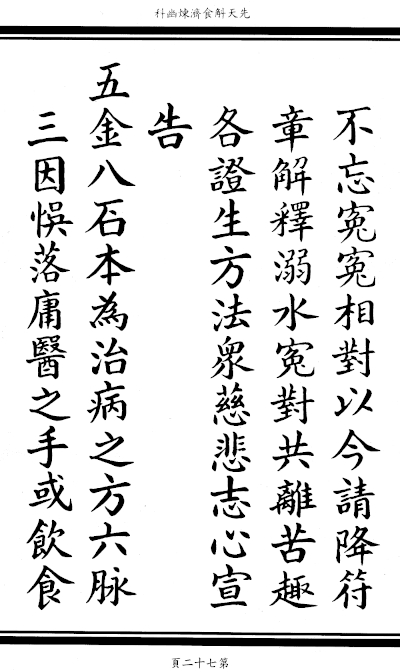 先天斛食濟煉幽科
不忘寃寃相對以今請降符
章解釋溺水寃對共離苦趣
各證生方法眾慈悲志心宣
告
五金八石本為治病之方六脉
三因悞落庸醫之手或飲食
第七十二頁